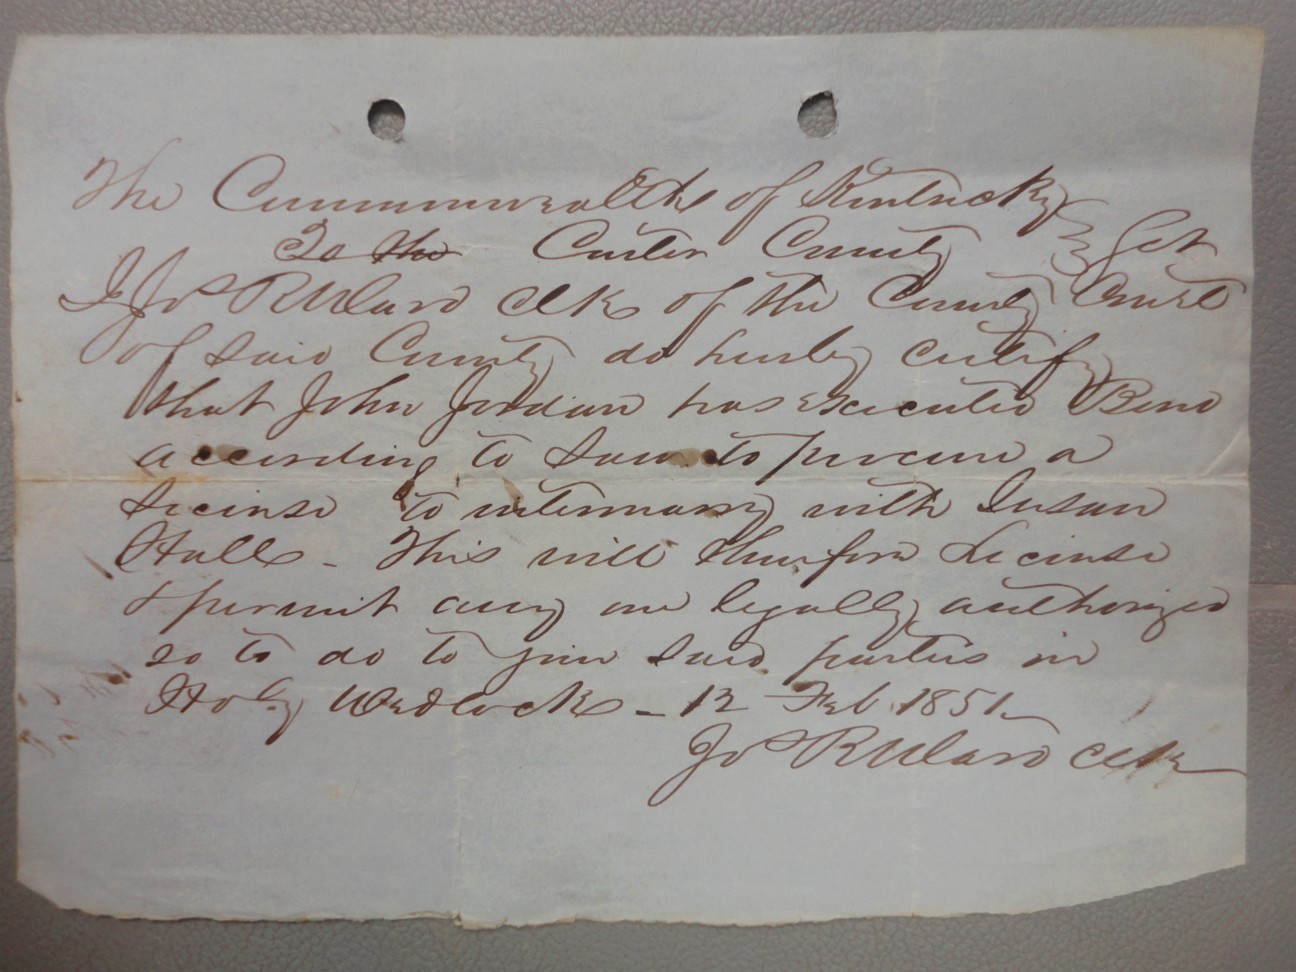 The Commonwealth of Kentucky
To the Carter County } Sct
I Jos R Ward clk of the County Court
of said County do hereby certify
that John Jordan has executed Bond
according to Law to procure a
License to intermarry with Susan
Hall - This will therefore License
& permit any one legally authorized
so to do to join said parties in
Holy Wedlock - 12 Feb 1851.
Jos R Ward Clk